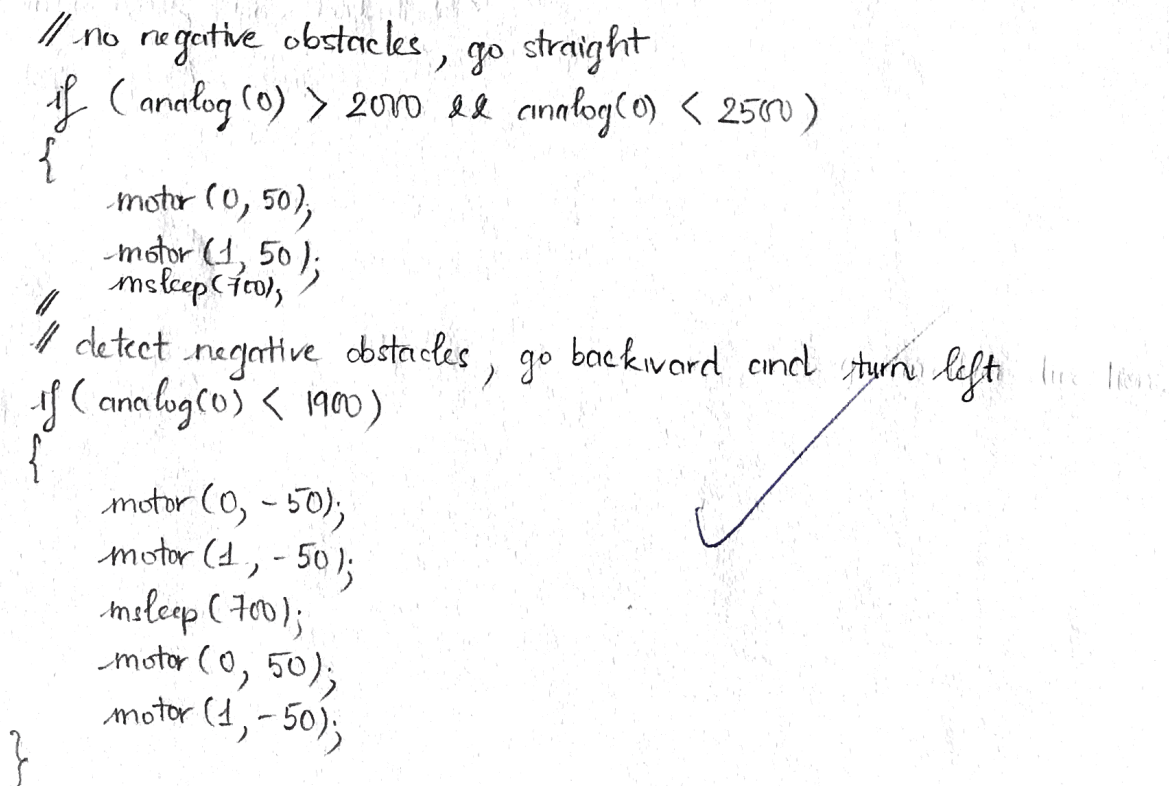 // no negative obstacles, go straight
if (analog(0) > 2000 && analog(0) < 2500)
{
motor (0, 50);
motor (1, 50);
msleep(700);
//
// detect negative obstacles, go backward and turn left
if (analog(0) < 1900)
{
motor (0, -50);
motor (1, -50);
msleep (700);
motor (0, 50);
motor (1, -50);
}